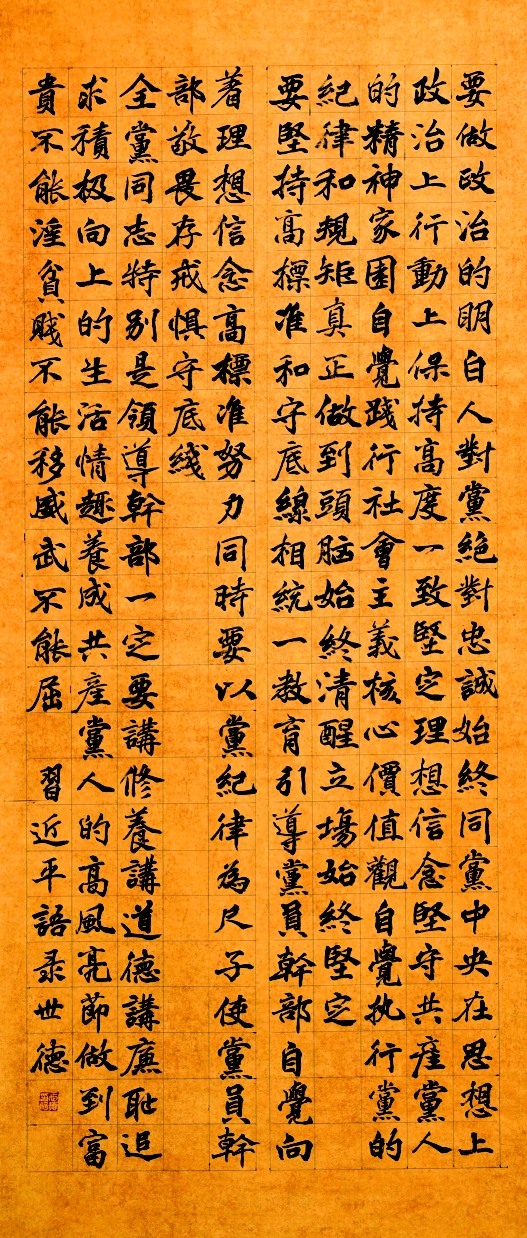 要做政治的明白人對黨絕對忠誠始終同黨中央在思想上
政治上行動上保持高度一致堅定理想信念堅守共産黨人
的精神家園自覺踐行社會主義核心價值觀自覺执行黨的
紀律和規矩真正做到頭脑始終清醒立場始終堅定
要堅持高標准和守底線相統一教育引導黨員幹部自覺向
着理想信念高標准努力同時要以黨紀律為尺子使黨員幹
部敬畏存戒惧守底綫
全黨同志特别是領導幹部一定要講修養講道德講廉耻追
求積极向上的生活情趣養成共産黨人的高風亮節做到富
貴不能淫貧賤不能移威武不能屈 習近平語录世德